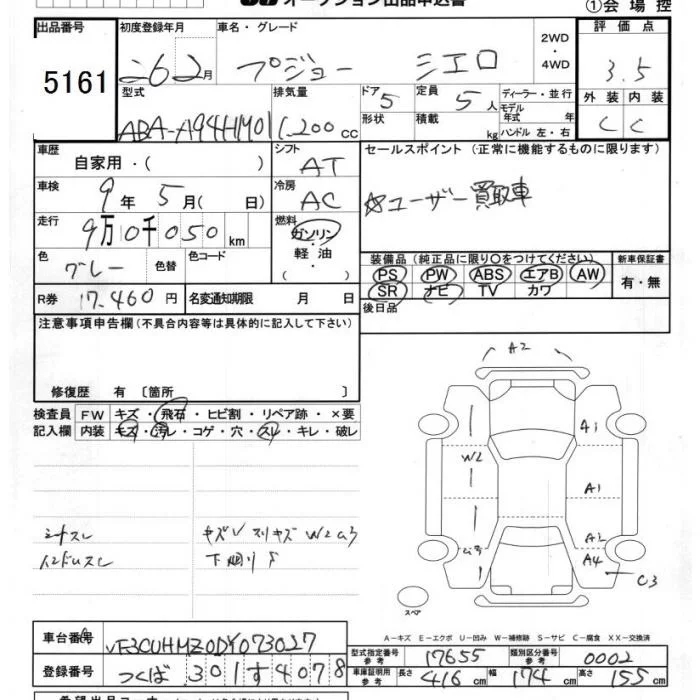 オークション出品申込書 ①会場控
出品番号 初度登録年月 車名・グレード 2WD・4WD 評価点
5161 26 2月 プジョー シエロ 3.5
型式 排気量 ドア 5 定員 5人 ディーラー・並行 外装 内装
ABA-A94HM01 1.200cc 形状 積載 kg モデル年式 年 ハンドル 左・右 C C
車歴 自家用・( ) シフト AT セールスポイント (正常に機能するものに限ります)
車検 9年 5月(日) 冷房 AC ☆ユーザー買取車
走行 9万0千050km 燃料 ガソリン・軽油・( )
色 グレー 色替 色コード 装備品(純正品に限り○をつけてください) 新車保証書
PS PW ABS エアB AW 有・無
R券 17.460円 名変通知期限 月 日 SR ナビ TV カワ
注意事項申告欄(不具合内容等は具体的に記入して下さい) 後日品
修復歴 有 〔箇所 〕
検査員 FW キズ・飛石・ヒビ割・リペア跡・×要
記入欄 内装 キズ・汚レ・コゲ・穴・スレ・キレ・破レ
A2
A1
W2
A1
A2
A4
C3
シートスレ キズV スリキズ W2 U3
スペア
A-キズ E-エクボ U-凹み W-補修跡 S-サビ C-腐食 XX-交換済
車台番号 VF3CUHMZ0DY073027
型式指定番号 参考 17655 類別区分番号 参考 0002
登録番号 つくば 301 す 4078 車庫証明用 参考 長さ 416cm 幅 174cm 高さ 155cm
希望出品コーナー